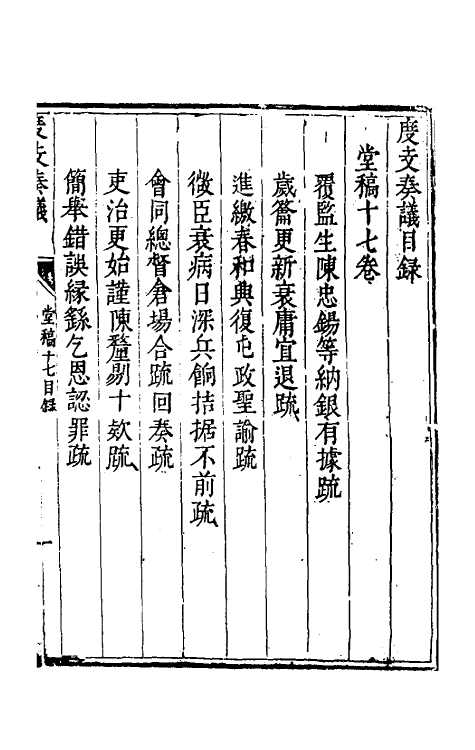 度支奏議目録
堂稿十七卷
覆監生陳忠錫等納銀有據疏
歲籥更新衰庸宜退疏
進繳春和興復屯政聖諭疏
微臣衰病日深兵餉拮据不前疏
會同總督倉場合疏回奏疏
吏治更始謹陳釐剔十欵疏
簡舉錯誤縁繇乞恩認罪疏
度支奏議
堂稿十七目録
一